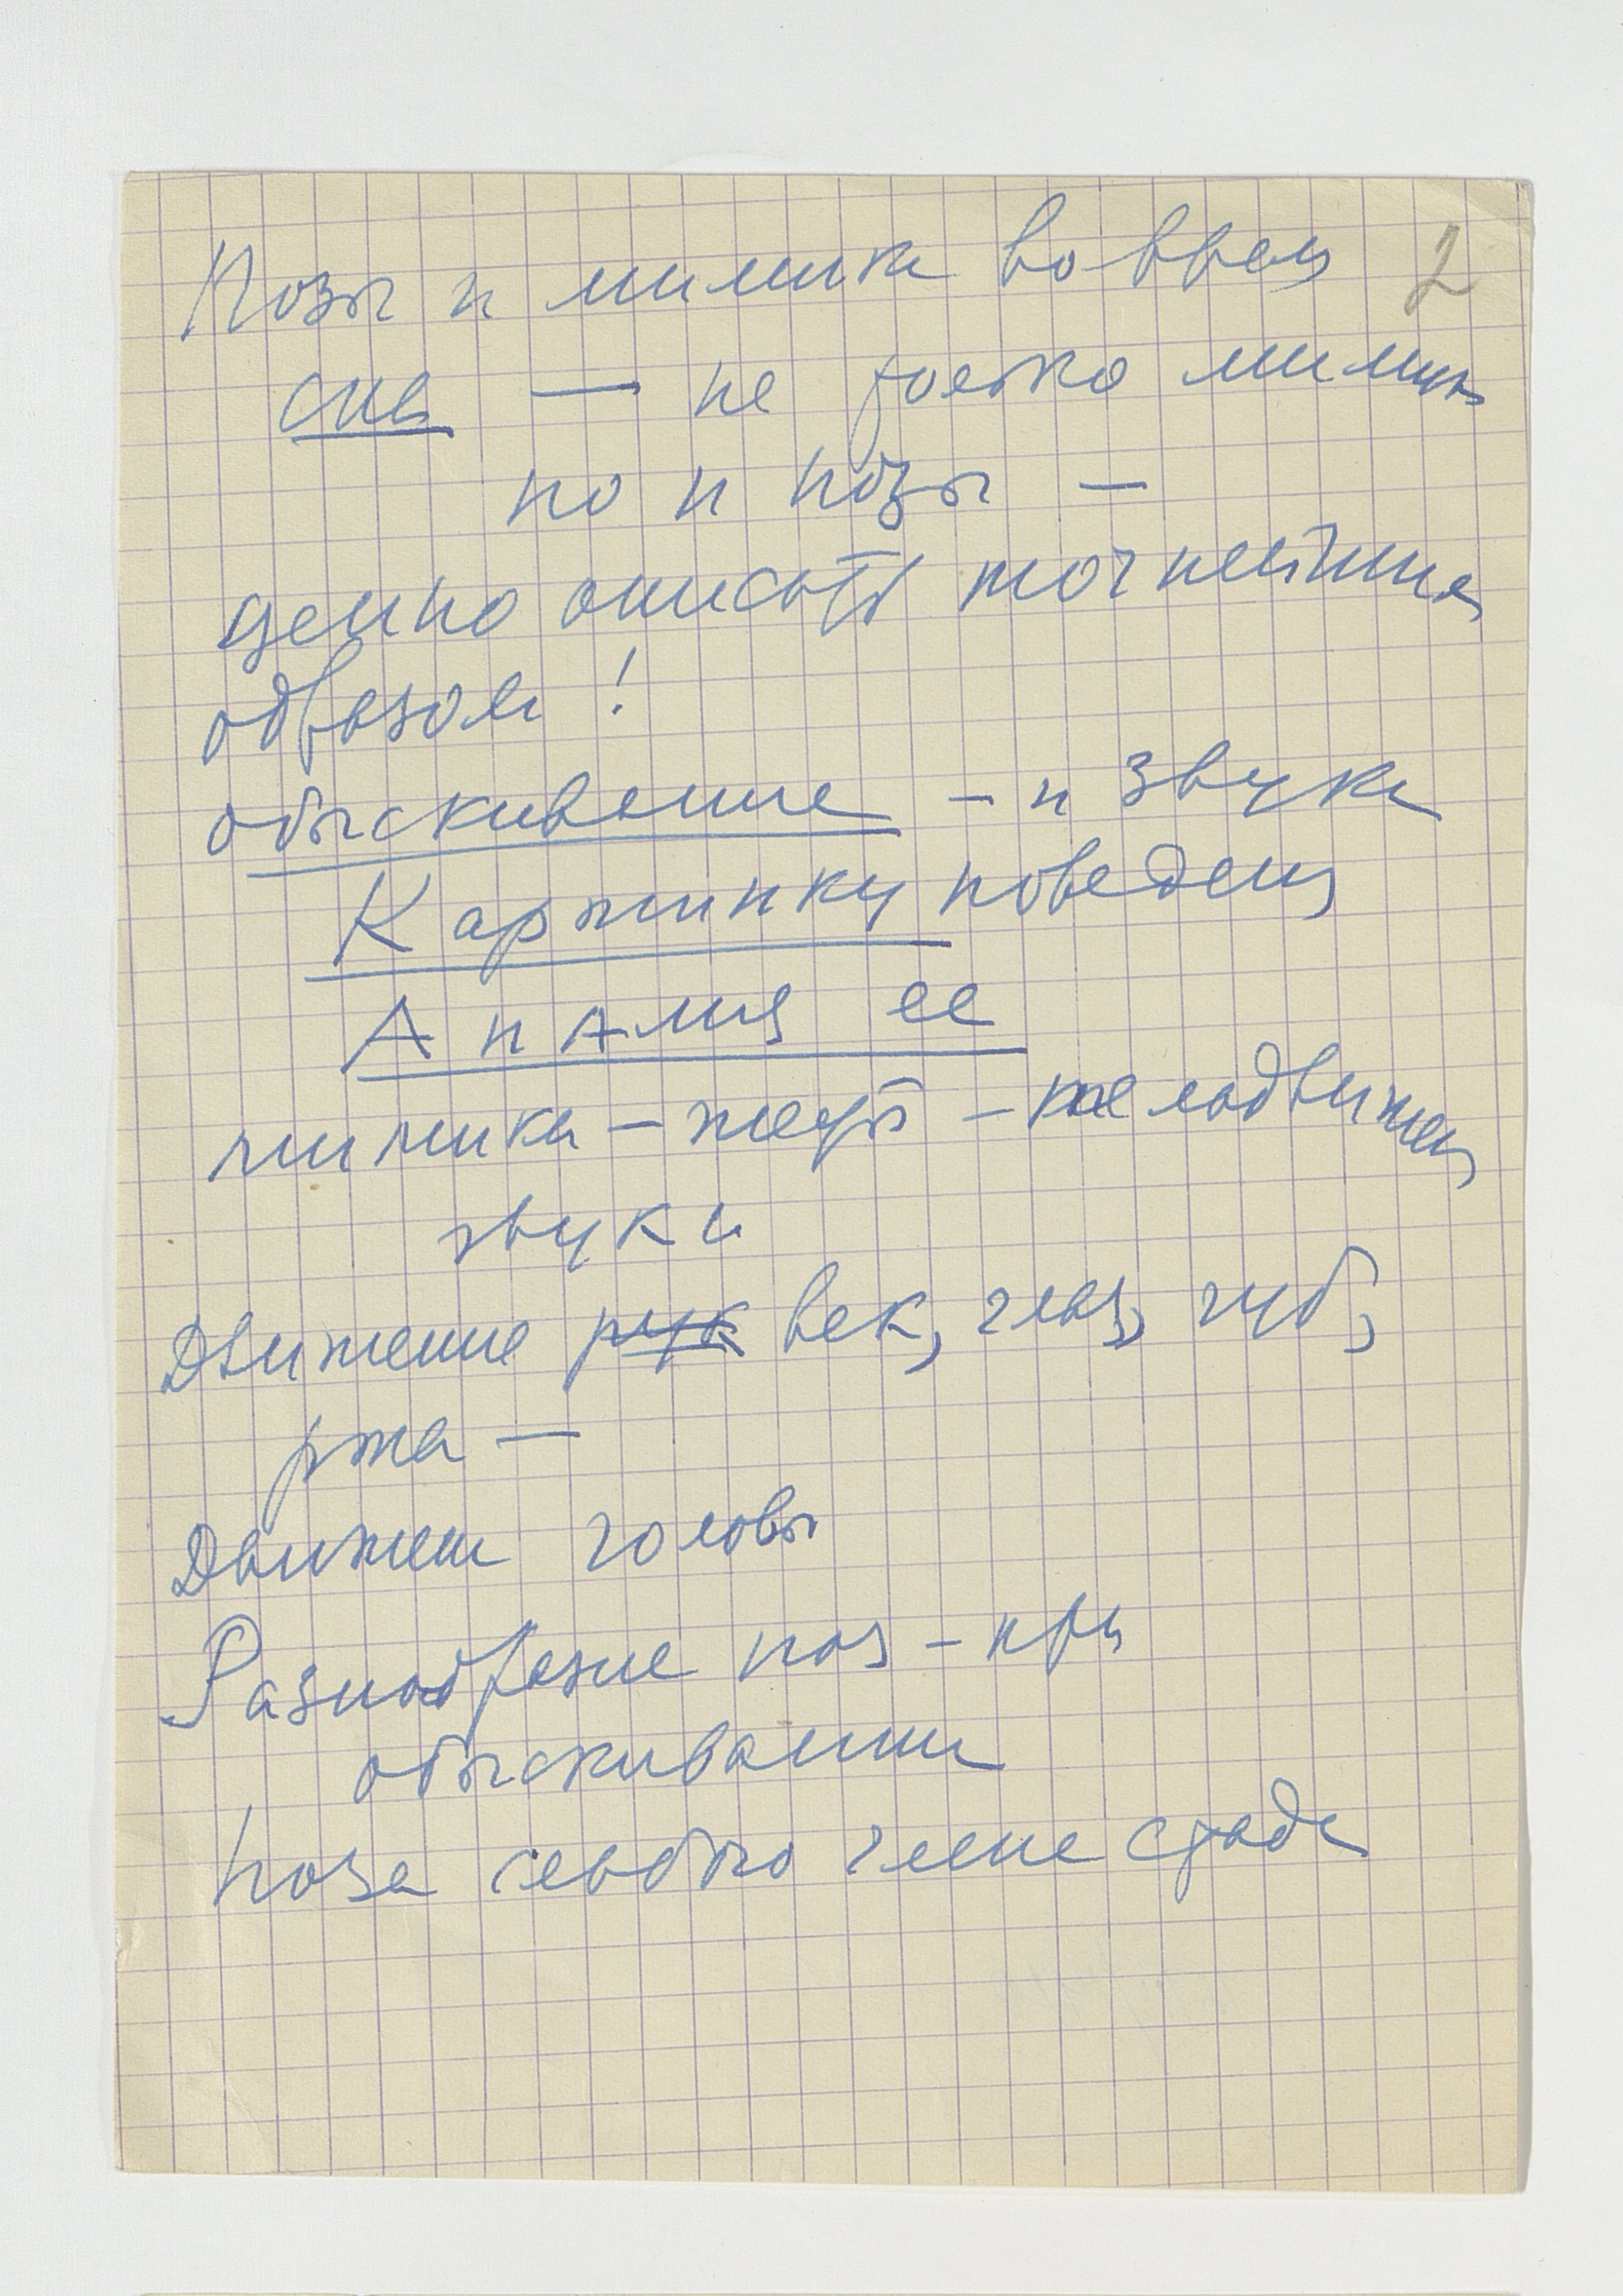 Позы и мимика во время 2
сна — не только мимик
но и позы —
ценно описать точнейшим
образом!
обыскивание — и звуки
Картинку поведен
Анализ ее
мимика — жест — телодвижен
звуки
Движение рук век, глаз, губ,
рта —
Движен головы
Разнообразие поз — при
обыскивании
поза слабого члена стада